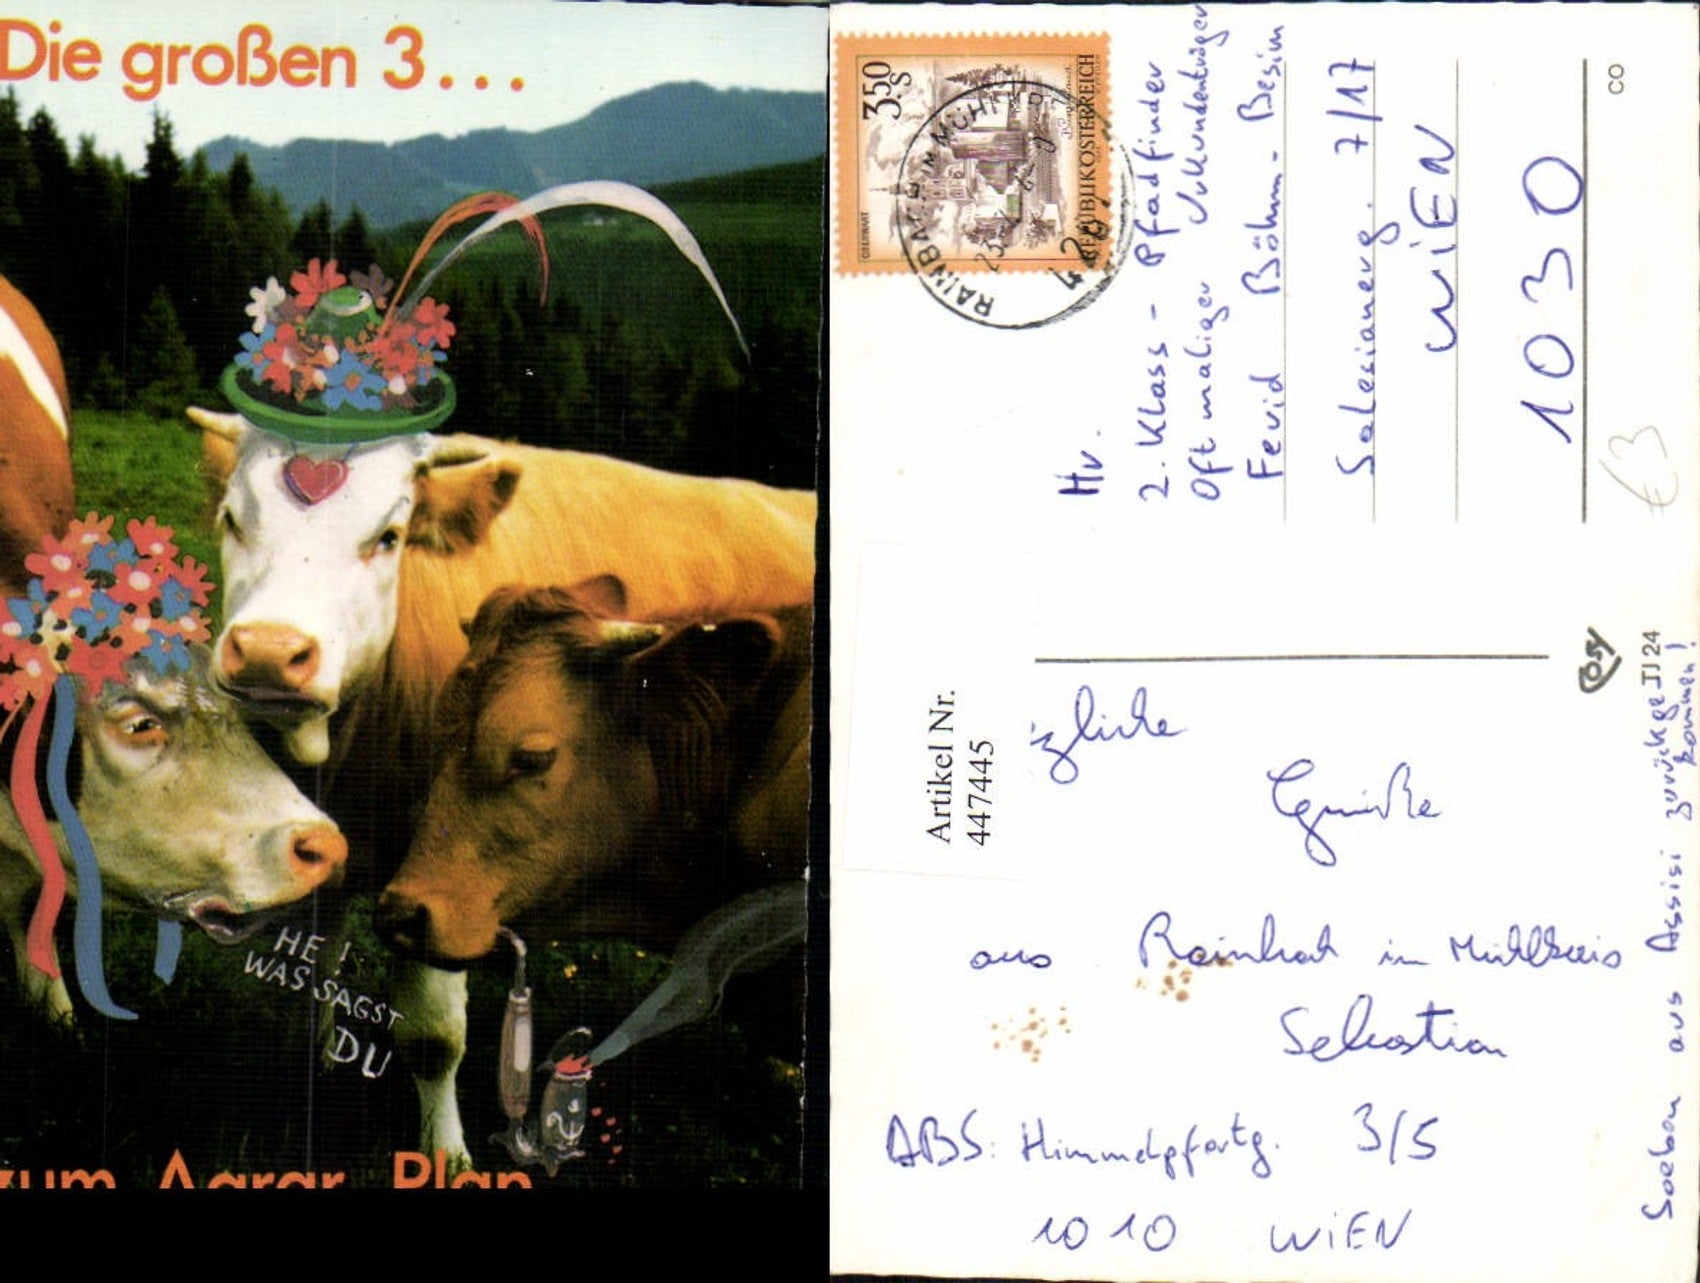 Die großen 3...
HE!
WAS SAGST
DU
zum Agrar Plan
3.50
S
REPUBLIK ÖSTERREICH
OBERWART
RAINBACH IM MÜHLKR
Hr.
2. Klass - Pfadfinder
Oftmaliger Urkundenträger
Ferid Böhm - Besim
Salesianerg. 7/17
WiEN
1030
CO
€3
Artikel Nr.
4474445
zliche
Grüße
aus Rainbach im Mühlkreis
Sebastian
ABS: Himmelpfortg. 3/5
1010 WiEN
JJ 24
Soeben aus Assisi zurückge
kommen!